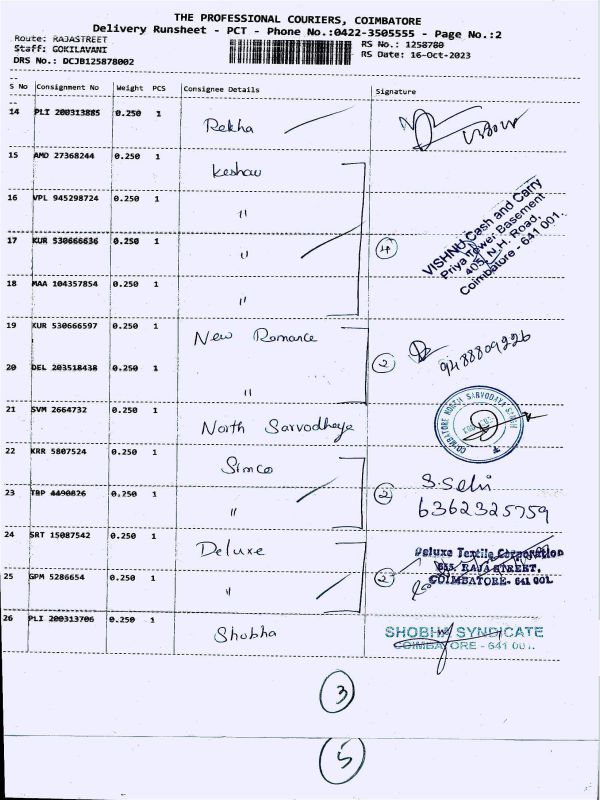 THE PROFESSIONAL COURIERS, COIMBATORE
Delivery Runsheet - PCT - Phone No.:0422-3505555 - Page No.:2
Route: RAJASTREET
Staff: GOKILAVANI
DRS No.: DCJB125878002
RS No.: 1258780
RS Date: 16-Oct-2023
S No Consignment No Weight PCS Consignee Details Signature
14 PLI 200313885 0.250 1 Rekha
15 AMD 27368244 0.250 1 Keshav
16 VPL 945298724 0.250 1 "
17 KUR 530666636 0.250 1 " 4
18 MAA 104357854 0.250 1 "
VISHNU Cash and Carry
Priya Tower Basement
405, N.H. Road,
Coimbatore - 641 001.
19 KUR 530666597 0.250 1 New Romance
20 DEL 203518438 0.250 1 " 2 9488809226
21 SVM 2664732 0.250 1 North Sarvodhaya
COIMBATORE NORTH SARVODAYA SANGH
22 KRR 5807524 0.250 1 Simco
23 TRP 4490826 0.250 1 " 2
S. Selvi
6362325759
24 SRT 15087542 0.250 1 Deluxe
25 GPM 5286654 0.250 1 " 2
Deluxe Textile Corporation
RAJA STREET,
COIMBATORE- 641 001.
26 PLI 200313706 0.250 1 Shobha
SHOBHA SYNDICATE
COIMBATORE - 641 001.
3
5